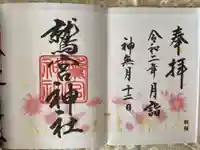 奉拝
令和二年月詣
神無月十二日
鷲宮神社